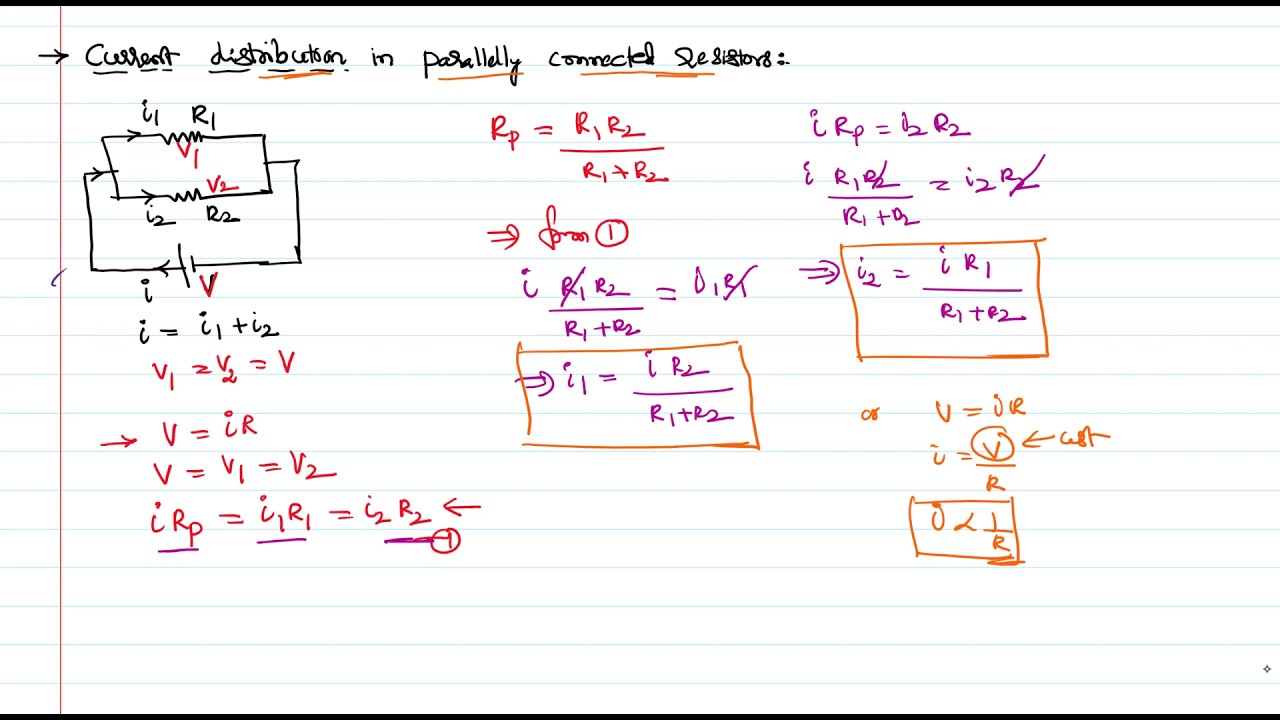 → Current distribution in parallelly connected resistors:-
i₁ R₁
V₁
V₂
i₂ R₂
i V
i = i₁ + i₂
V₁ = V₂ = V
→ V = iR
V = V₁ = V₂
i Rₚ = i₁R₁ = i₂R₂ ← ①
Rₚ = R₁R₂ / R₁+R₂
⇒ from ①
i R₁R₂ / R₁+R₂ = i₁R₁
⇒ i₁ = i R₂ / R₁+R₂
i Rₚ = i₂ R₂
i R₁R₂ / R₁+R₂ = i₂ R₂
⇒ i₂ = i R₁ / R₁+R₂
or V = iR
i = V / R ← cst
i ∝ 1/R